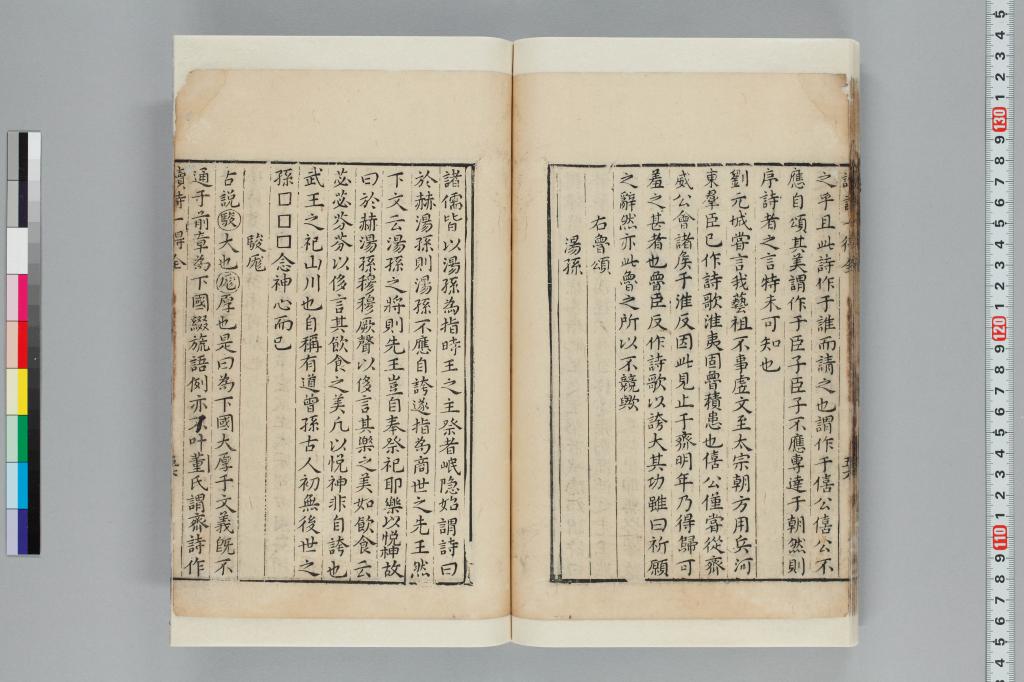 之乎且此詩作于誰而請之也謂作于僖公僖公不
應自頌其美謂作于臣子臣子不應專達于朝然則
序詩者之言特未可知也
劉元城嘗言我藝祖不事虛文至太宗朝方用兵河
東羣臣已作詩歌淮夷固魯積患也僖公僅嘗從齊
威公會諸矦于淮反因此見止于齊明年乃得歸可
羞之甚者也魯臣反作詩歌以誇大其功雖曰祈願
之辭然亦此魯之所以不競歟
右魯頌
湯孫
諸儒皆以湯孫為指時王之主祭者岷隐始謂詩曰
於赫湯孫則湯孫不應自誇遂指為商世之先王然
下文云湯孫之將則先王豈自奉祭祀耶樂以悦神故
曰於赫湯孫穆穆厥聲以侈言其樂之美如飲食云
苾苾芬芬以侈言其飲食之美凢以悦神非自誇也
武王之祀山川也自稱有道曾孫古人初無後世之
孫口口口念神心而已
駿厖
古説駿大也厖厚也是曰為下國大厚于文義既不
通于前章為下國綴旒語例亦不叶董氏謂齊詩作
讀詩一得全